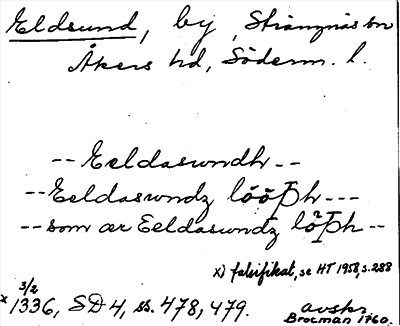 Eldsund, by, Strängnäs kn
Åkers hd, Söderm. l.
-- Eeldaswndh --
-- Eeldaswndz lööþh ---
-- som ær Eeldaswndz löþh --
x) falsifikat, se HT 1958, s. 288
3/2
x 1336, SD 4, ss. 478, 479.
avskr.
Brocman 1760.